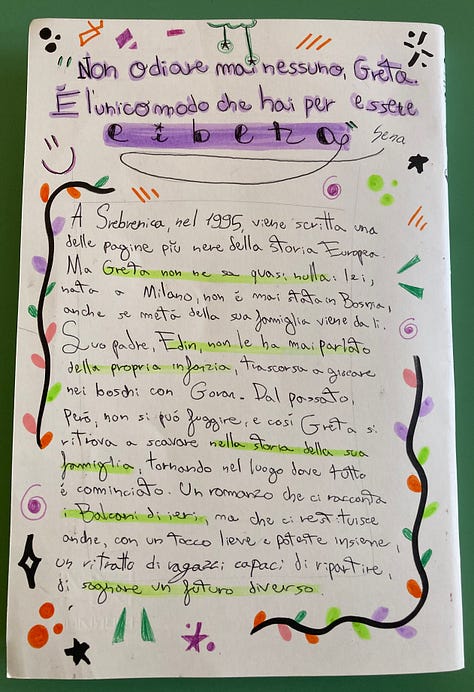 "Non odiare mai nessuno, Greta.
È l'unico modo che hai per essere
eibera"
Sena
A Srebrenica, nel 1995, viene scritta una
delle pagine più nere della storia Europea.
Ma Greta non ne sa quasi nulla: lei,
nata a Milano, non è mai stata in Bosnia,
anche se metà della sua famiglia viene da lì.
Suo padre, Edin, non le ha mai parlato
della propria infanzia, trascorsa a giocare
nei boschi con Goran. Dal passato,
però, non si può fuggire, e così Greta si
ritrova a scavare nella storia della sua
famiglia, tornando nel luogo dove tutto
è cominciato. Un romanzo che ci racconta
i Balcani di ieri, ma che ci restituisce
anche, con un tocco lieve e potente insieme,
un ritratto di ragazzi capaci di ripartire,
di sognare un futuro diverso.